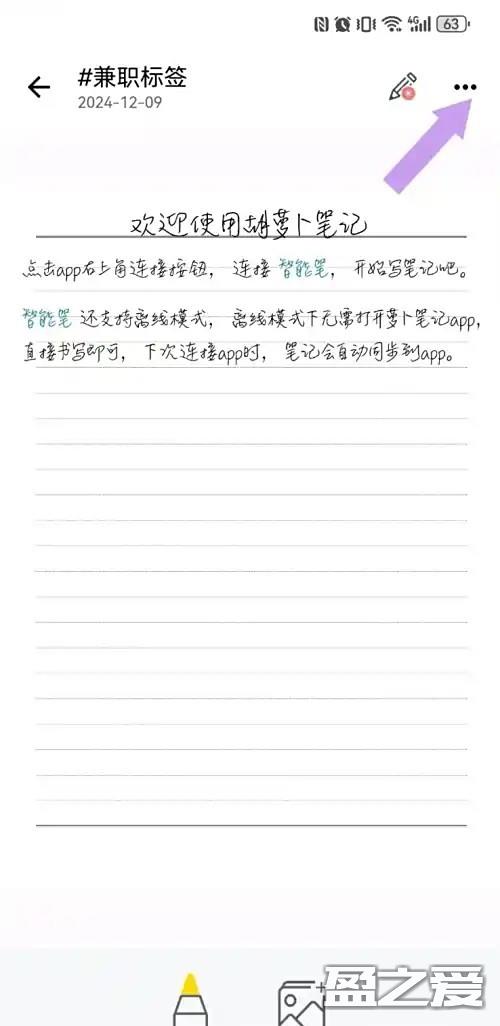 4G 63
#兼职标签
2024-12-09
欢迎使用胡萝卜笔记
点击app右上角连接按钮，连接 智能笔，开始写笔记吧。
智能笔 还支持离线模式，离线模式下无需打开萝卜笔记app，
直接书写即可，下次连接app时，笔记会自动同步到app。
盈之爱